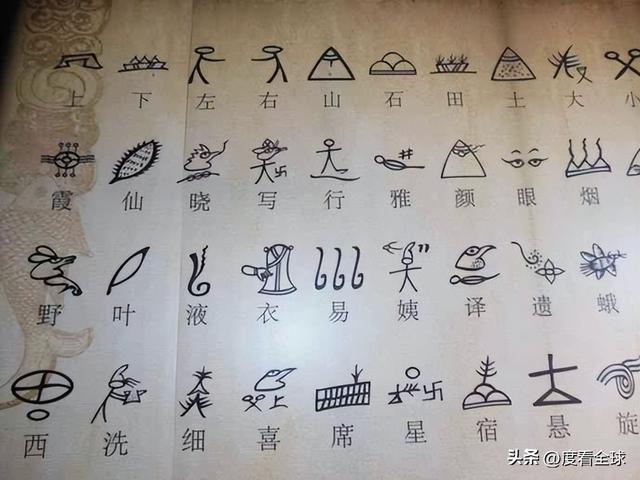 上 下 左 右 山 石 田 土 大 小
霞 仙 晓 写 行 雅 颜 眼 烟
野 叶 液 衣 易 姨 译 遗 蛾
西 洗 细 喜 席 星 宿 悬 旋
头条 @度看全球